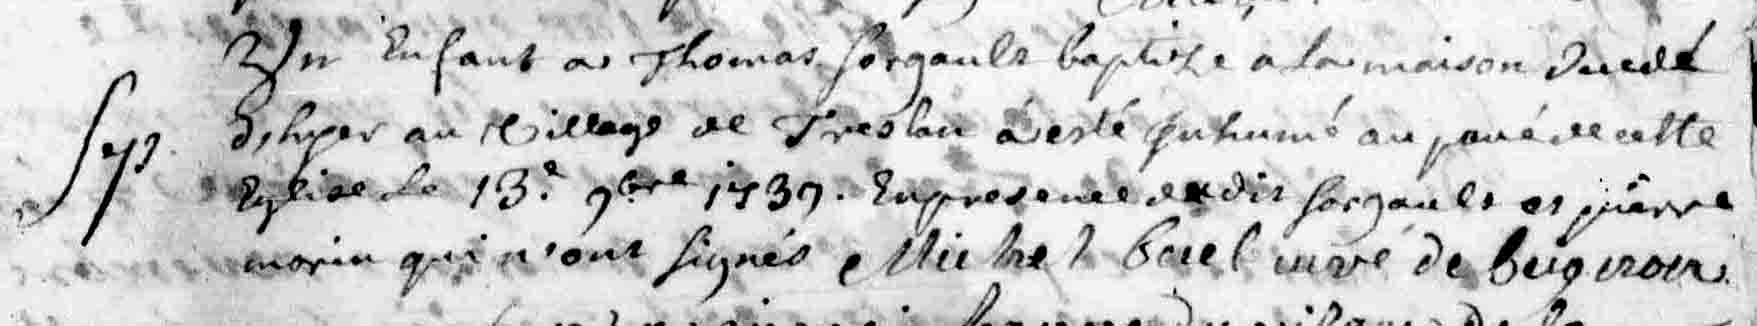 Un Enfant a Thomas Sorgault baptize a la maison
au village de Treslan a esté Inhumé au pavé de cette
Eglise Le 13.e 9bre 1737. En presence du dit Sorgault et pierre
morin qui n'ont signés Michel curé de
Sep.